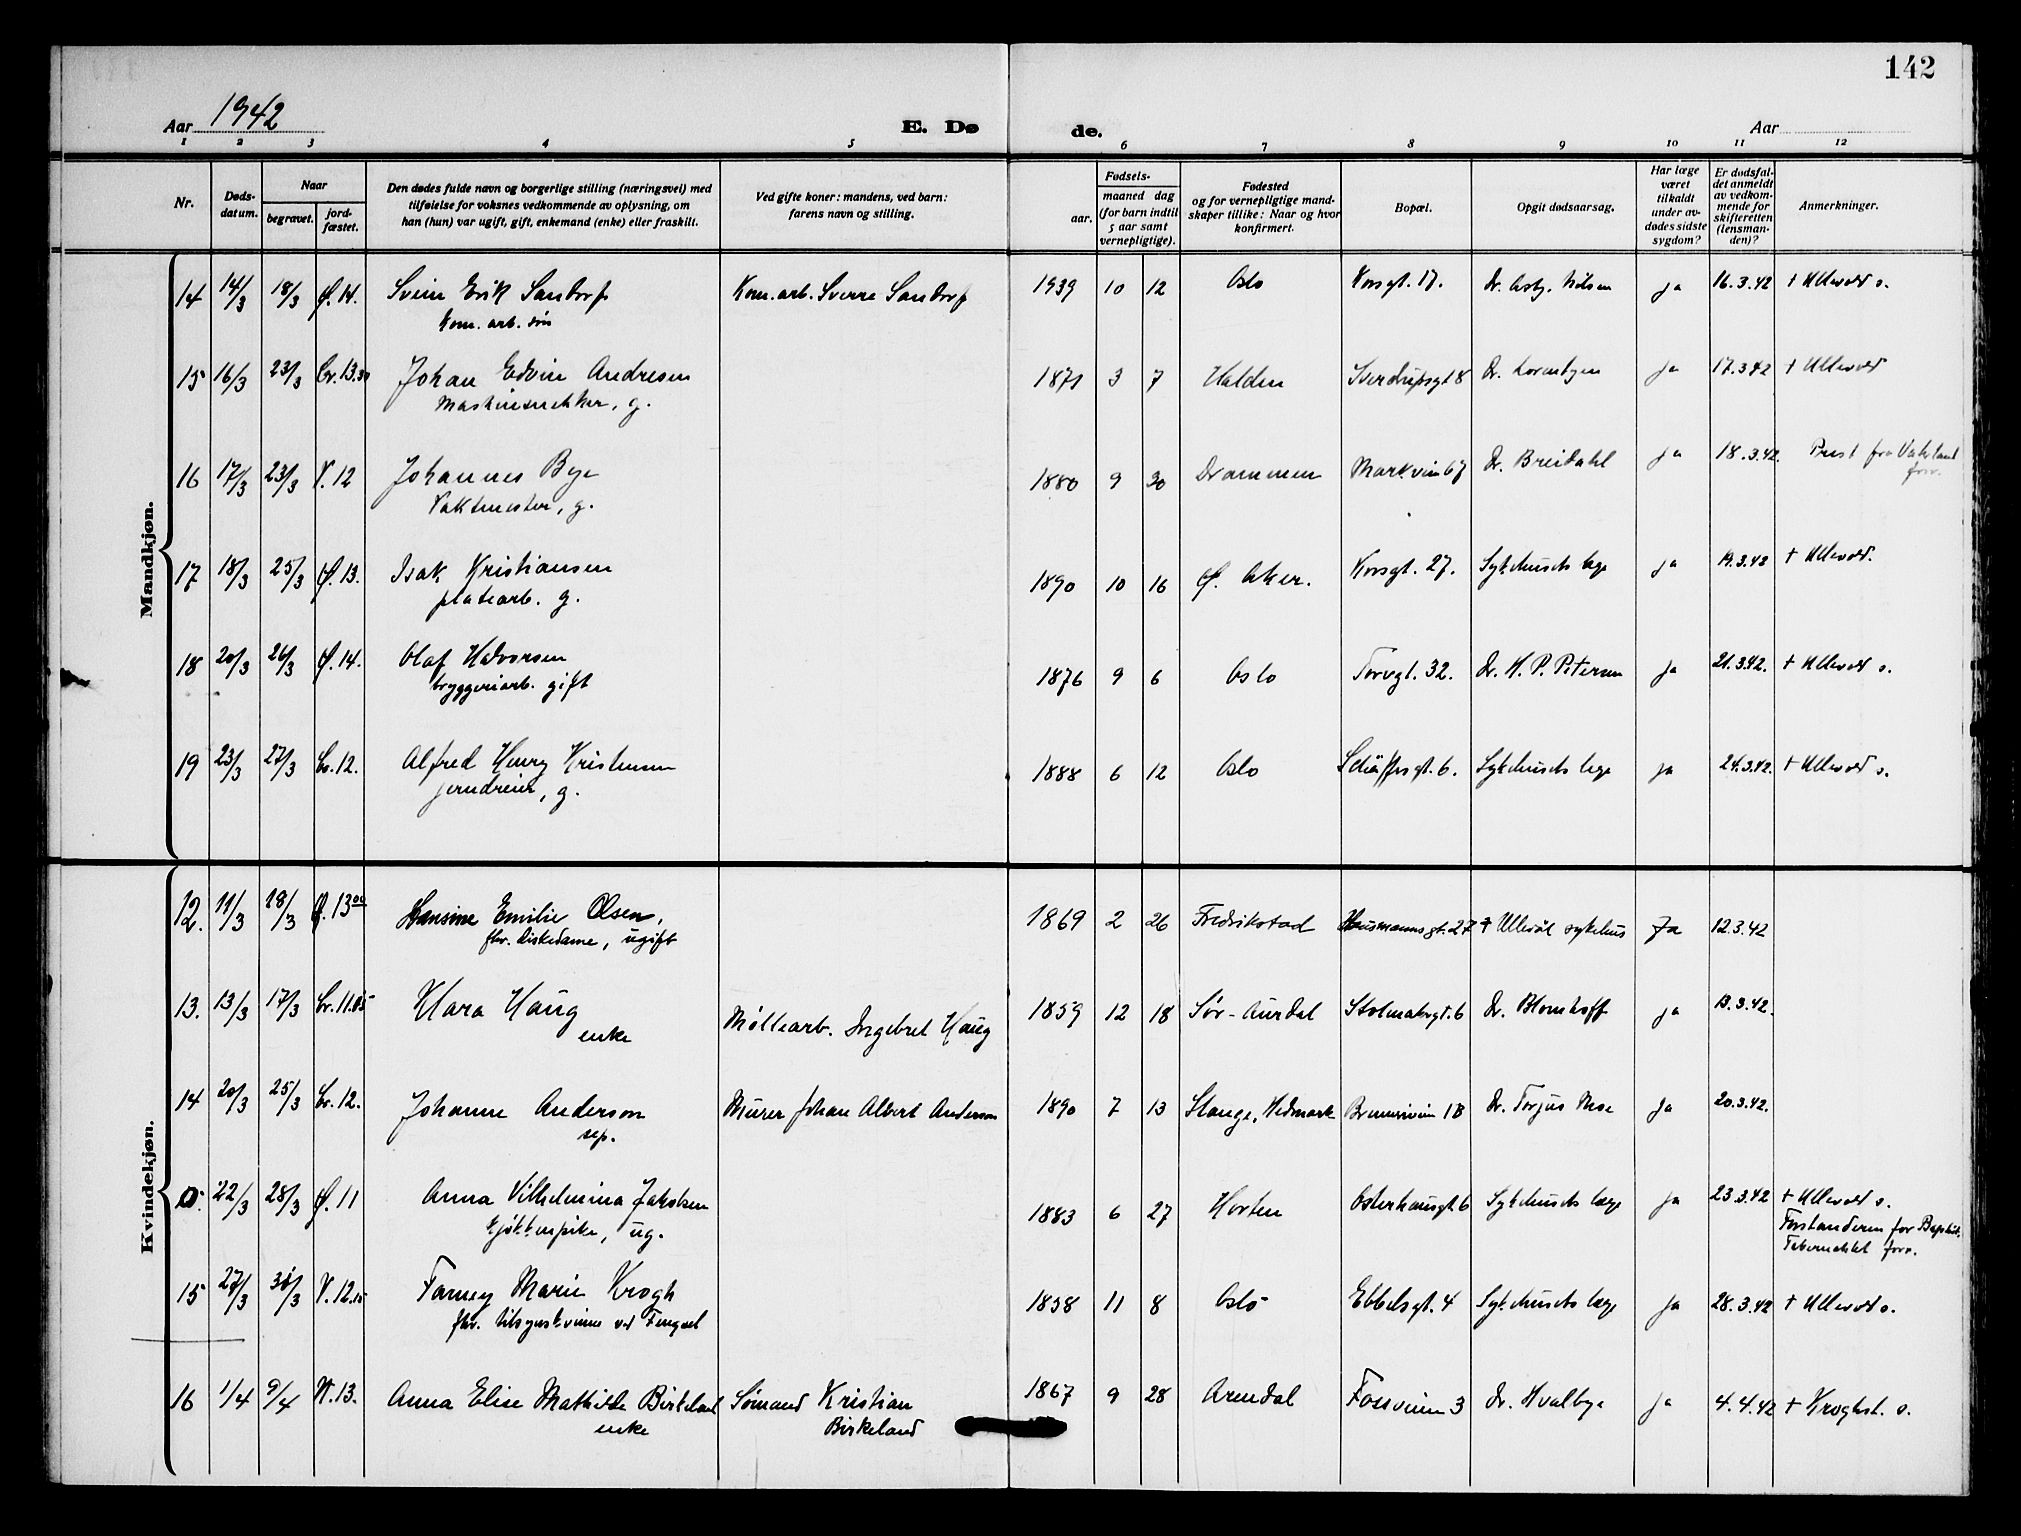 142
Aar 1942
E. Dø de.
Aar
1 2 3 4 5 6 7 8 9 10 11 12
Nr.
Døds-
datum.
Naar
begravet.
jord-
fæstet.
Den dødes fulde navn og borgerlige stilling (næringsvei) med
tilføielse for voksnes vedkommende av oplysning, om
han (hun) var ugift, gift, enkemand (enke) eller fraskilt.
Ved gifte koner: mandens, ved barn:
farens navn og stilling.
Fødsels-
aar.
maaned dag
(for barn indtil
5 aar samt
vernepligtige).
Fødested
og for vernepligtige mand-
skaper tillike: Naar og hvor
konfirmert.
Bopæl.
Opgit dødsaarsag.
Har læge
været
tilkaldt
under av-
dødes sidste
sygdom?
Er dødsfal-
det anmeldt
av vedkom-
mende for
skifteretten
(lensman-
den)?
Anmerkninger.
Mandkjøn.
14 14/3 18/3 Ø. 14. Svein Erik Sandorf Kom. arb. Sverre Sandorf 1939 10 12 Oslo Korsgt. 17. Dr. Asbj. Nilsen ja 16.3.42 + Ullevål s.
Kom. arb. søn
15 16/3 23/3 Cr. 13.30 Johan Edvin Andresen 1871 3 7 Halden Sverdrupsgt 8 Dr. ja 17.3.42 + Ullevål
Maskinsnekker, g.
16 17/3 23/3 V. 12 Johannes Bye 1880 9 30 Drammen Markvein 67 Dr. Breidahl ja 18.3.42. Prest fra Vålerland
Vaktmester, g. forr.
17 18/3 25/3 Ø. 13. Isak Kristiansen 1890 10 16 Ø. Aker. Korsgt. 27. Sykehusets lege ja 19.3.42 + Ullevål.
platearb. g.
18 20/3 26/3 Ø. 14. Olaf Halvorsen 1876 9 6 Oslo Torvgt. 32. Dr. H. P. Petersen ja 21.3.42. + Ullevål s.
bryggeriarb. gift
19 23/3 27/3 Cr. 12. Alfred Henry Kristensen 1888 6 12 Oslo Schäffersgt. 6. Sykehusets lege ja 24.3.42. + Ullevål s.
jerndreier, g.
Kvindekjøn.
12. 11/3 18/3 Ø. 13 00 Hansine Emilie Olsen, 1869 2 26 Fredrikstad Hausmannsgt. 27 + Ullevål sykehus Ja 12.3.42
fhv. diskedame, ugift
13. 13/3 17/3 Cr. 11.05 Klara Haug Møllearb. Ingebret Haug 1859 12 18 Sør-Aurdal Stolmakergt. 6 Dr. Blomhoff ja 13.3.42.
enke
14 20/3 25/3 Cr. 12. Johanne Anderson Murer Johan Albert Anderson 1890 7 13 Stange, Hedmark Brenneriveien 1B Dr. Torjus Moe Ja 20.3.42.
sep.
0. 22/3 28/3 Ø. 11 Anna Vilhelmina Jakobsen 1883 6 27 Horten Osterhausgt 6 Sykehusets læge ja 23.3.42 + Ullevål s.
Kjøkkenpike, ug. Forstanderen for Baptist.
Tabernaklet forr.
15 27/3 31/3 V. 12.15 Fanny Marie Krogh 1858 11 8 Oslo Ebbelsgt. 4 Sykehusets læge ja 28.3.42 + Ullevål s.
fhv. tilsynskvinne ved Fengsel
16 1/4 9/4 N. 13. Anna Elise Mathilde Birkeland Sømand Kristian 1867 9 28 Arendal Fossveien 3 Dr. Hvalbye ja 4.4.42 + Kroghst. s.
enke Birkeland